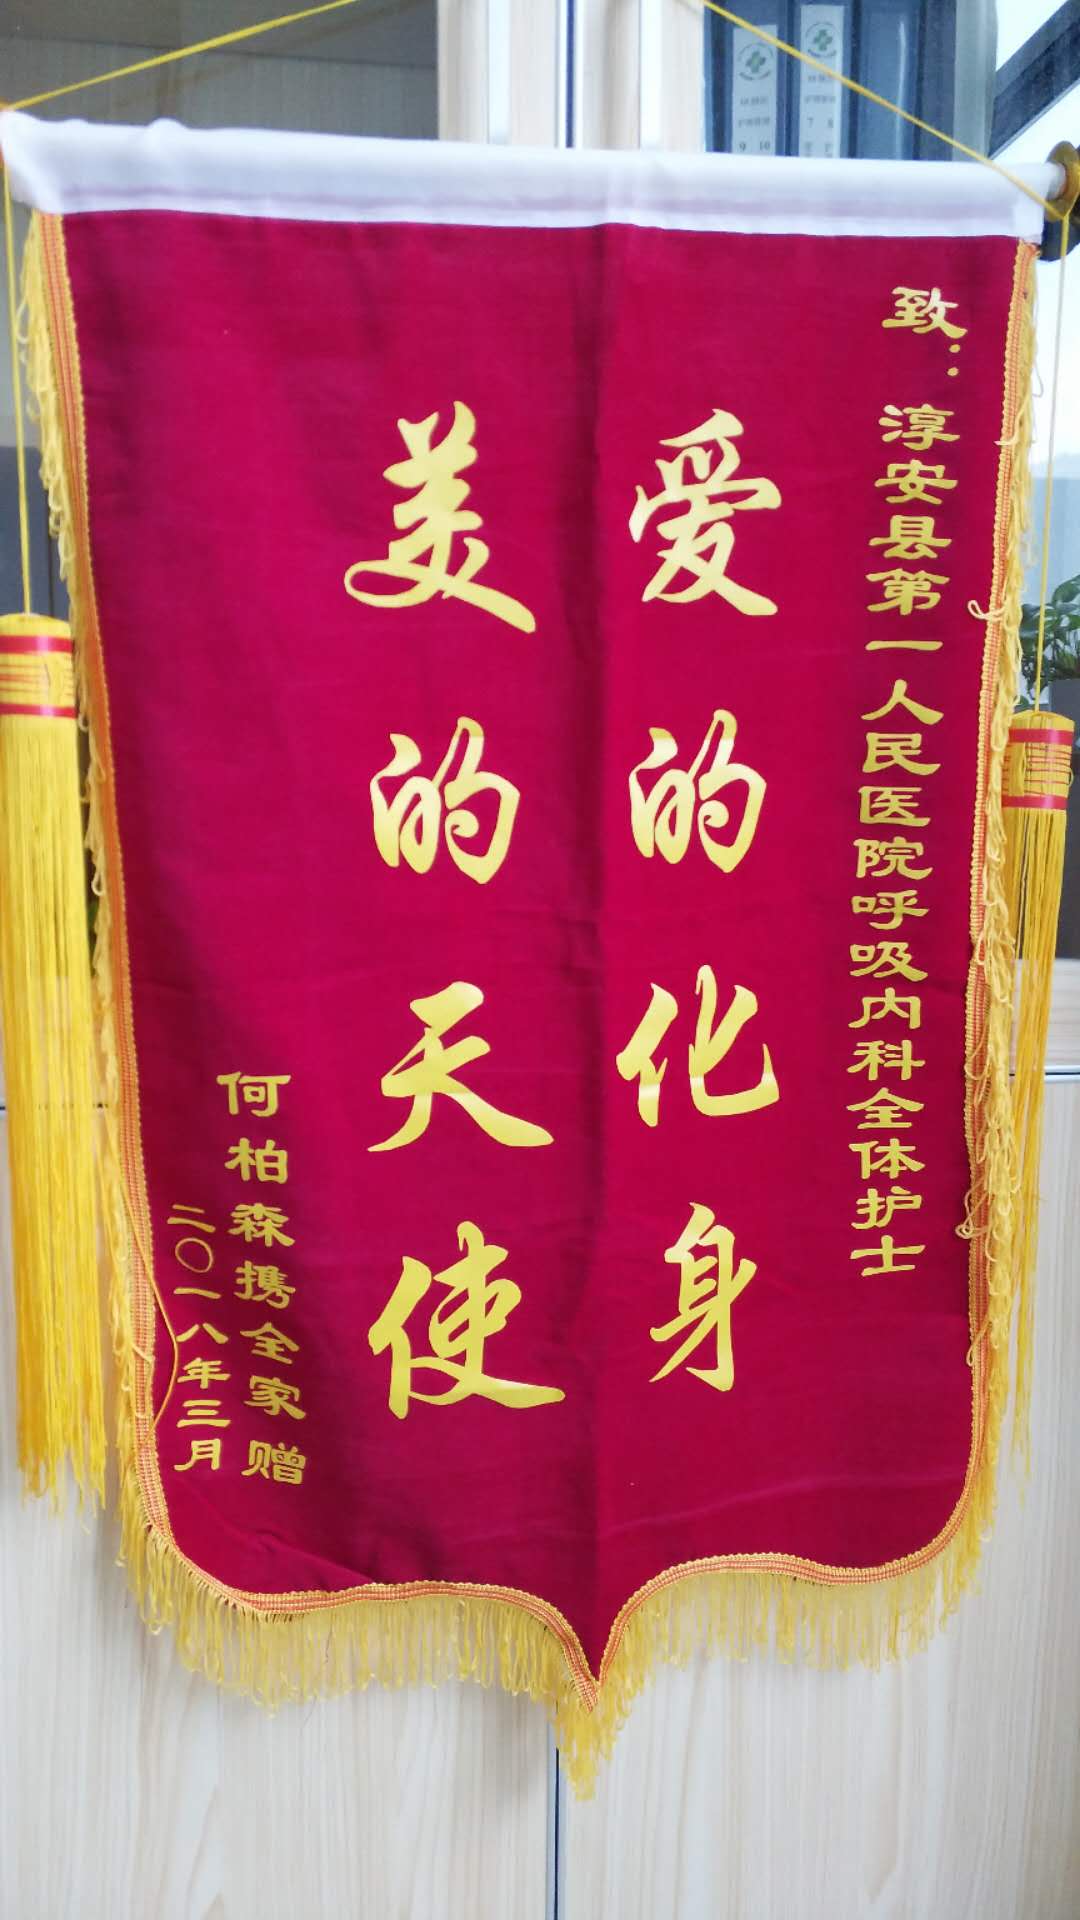 致：淳安县第一人民医院呼吸内科全体护士
爱的化身
美的天使
何柏森携全家赠
二〇一八年三月
7 8
9 10